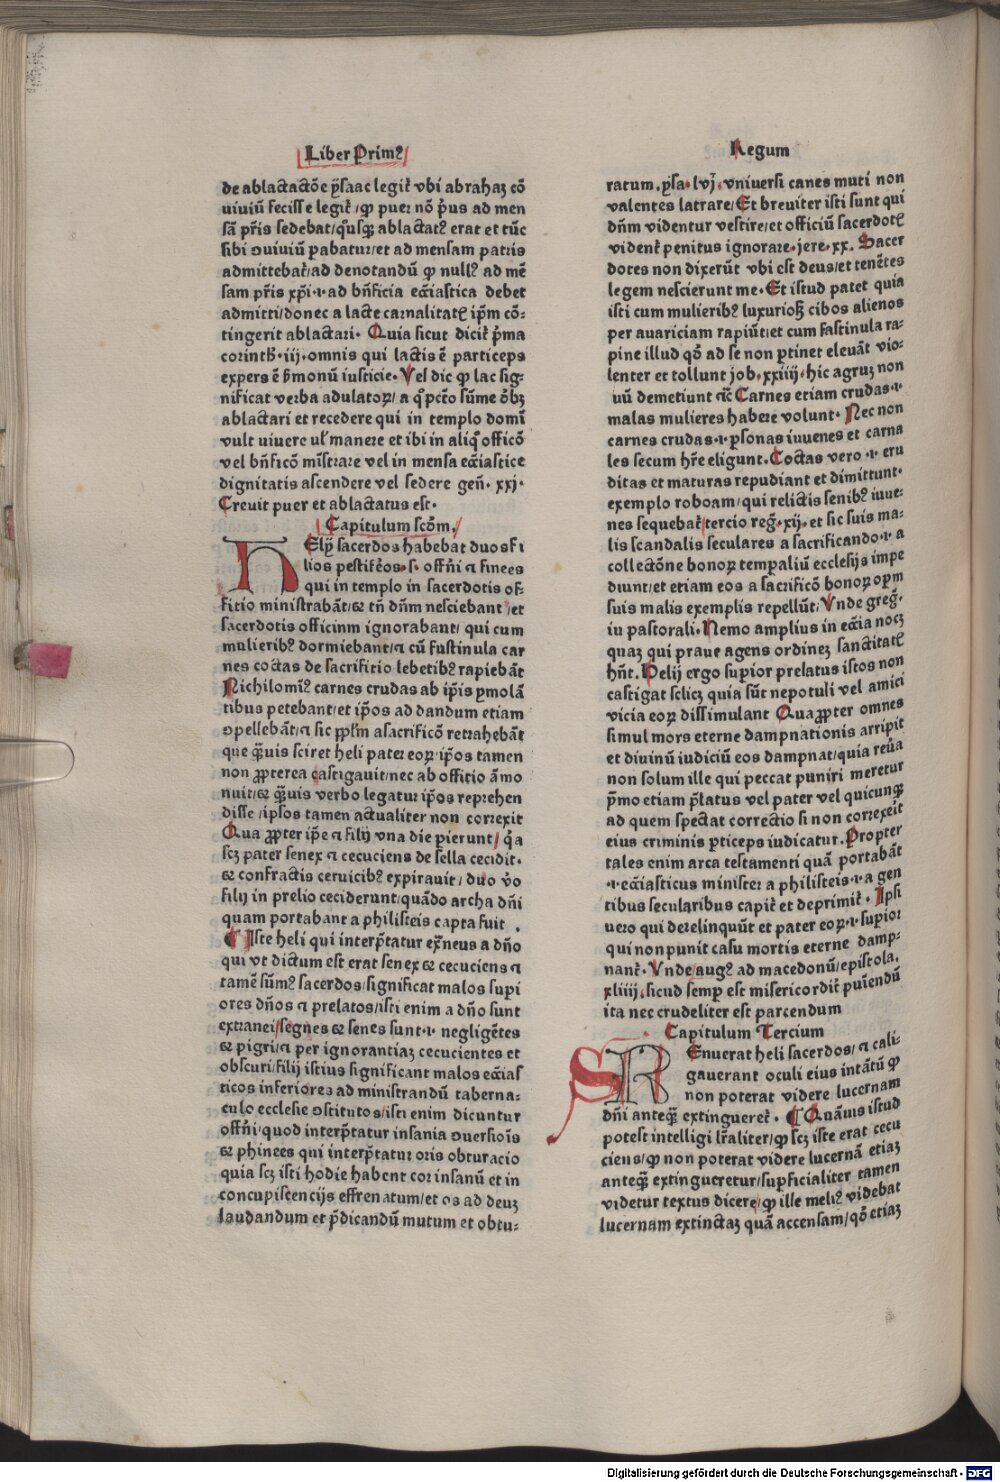 Liber Prim⁹
Regum
de ablactacōe ysaac legit᷑ vbi abrahaʒ cō
uiuiū fecisse legit᷑ / ꝙ puer nō p̓us ad men
sā pr̄is sedebat / qͦusqꝫ ablactat⁹ erat et tūc
sibi ↄuiuiū parabatur / et ad mensam patris
admittebat᷑ / ad denotandū ꝙ null⁹ ad mē
sam pr̄is xp̄i ·i· ad bn̄ficia ecc̄iastica debet
admitti / donec a lacte carnalitatꝭ ip̄m cō-
tingerit ablactari. Quia sicut dicit᷑ p̓ma
corinth. iij. omnis qui lactis ē particeps
expers ē s̓monū iusticie. Vel dic ꝙ lac sig-
nificat verba adulatoꝝ / a qͦ pct̄o sūme oībꝫ
ablactari et recedere qui in templo domī
vult viuere ul̓ manere et ibi in aliqͦ officō
vel bn̄ficō mīstrare vel in mensa ecc̄iastice
dignitatis ascendere vel sedere gen̄. xxj.
Creuit puer et ablactatus est.
Capitulum scōm.
Hely sacerdos habebat duos fi
lios pestifēos .s. offn̄i ⁊ finees
qui in templo in sacerdotis of-
fitio ministrabāt / & tn̄ dn̄m nesciebant / et
sacerdotis officinm ignorabant / qui cum
mulierib⁹ dormiebant / ⁊ cū fustinula car
nes coctas de sacrifitio lebetib⁹ rapiebāt
Nichilomī⁹ carnes crudas ab ip̄is ꝑmolā
tibus petebant / et ip̄os ad dandum etiam
ↄpellebāt / ⁊ sic pp̄l̄m a sacrificō retrahebāt
que qͣuis sciret heli pater eoꝝ / ip̄os tamen
non ꝓpterea castigauit / nec ab offitio āmo
nuit / & qͣuis verbo legatur ip̄os reprehen
disse / ipsos tamen actualiter non correxit
Qua ꝓpter ip̄e ⁊ filij vna die perierunt / qͥa
scꝫ pater senex ⁊ cecuciens de sella cecidit.
& confractis ceruicib⁹ expirauit / duo v̓o
filij in prelio ceciderunt / quādo archa dn̄i
quam portabant a philisteis capta fuit .
¶ Iste heli qui interp̄tatur ext̄neus a dn̄o
qui vt dictum est erat senex & cecuciens ⁊
tamē sūm⁹ sacerdos / significat malos supi
ores dn̄os ⁊ prelatos / isti enim a dn̄o sunt
extranei / segnes & senes sunt ·i· negligētes
& pigri / ⁊ per ignorantiaʒ cecucientes et
obscuri / filij istius significant malos ecc̄ias
ticos inferiores ad ministrandū taberna-
culo ecclesie ↄstitutos / isti enim dicuntur
offn̄i / quod interp̄tatur insania ↄuersiois
& phinees qui interp̄tatur oris obturacio
quia scꝫ isti hodie habent cor insanū et in
concupiscencijs effrenatum / et os ad deuʒ
laudandum et p̄dicandū mutum et obtu-
ratum. ysa. lvj. vniuersi canes muti non
valentes latrare / Et breuiter isti sunt qui
dn̄m videntur vestire / et officiū sacerdotꝭ
vident᷑ penitus ignorare. jere. xx. Sacer
dotes non dixerūt vbi est deus / et tenētes
legem nescierunt me. Et istud patet quia
isti cum mulierib⁹ luxurioß cibos alienos
per auariciam rapiūt / et cum fastinula ra-
pine illud qd̄ ad se non ꝑtinet eleuāt vio-
lenter et tollunt job. xxiiij. hic agruʒ non
uū demetiunt ⁊c̄ Carnes etiam crudas ·i·
malas mulieres habere volunt. Nec non
carnes crudas ·i· ꝑsonas iuuenes et carna
les secum hr̄e eligunt. Coctas vero ·i· eru
ditas et maturas repudiant et dimittunt.
exemplo roboam / qui relictis senib⁹ iuue-
nes sequebat᷑ tercio reg̅. xij. et sic suis ma-
lis scandalis seculares a sacrificando ·i· a
collectōne bonoꝝ temꝑaliū ecclesijs impe
diunt / et etiam eos a sacrificō bonoꝝ oꝑm
suis malis exemplis repellūt / Vnde greg̅.
iu pastorali. Nemo amplius in ecc̄ia nocꝫ
quaʒ qui praue agens ordineʒ sanctitatꝭ
hn̄t. Helij ergo suꝑior prelatus istos non
castigat sclicꝫ quia sūt nepotuli vel amici
vicia eoꝝ dissimulant Qua ꝓpter omnes
simul mors eterne dampnationis arripit
et diuinū iudiciū eos dampnat / quia reūa
non solum ille qui peccat puniri meretur
p̄mo etiam p̄latus vel pater vel quicunqꝫ
ad quem spectat correctio si non correxeit
eius criminis ꝑticeps iudicatur. Propter
tales enim arca testamenti quā portabāt
·i· ecc̄iasticus minister a philisteis ·i· a gen
tibus secularibus capit᷑ et deprimit᷑. Ipsi
uero qui derelinquūt et pater eoꝝ ·i· suꝑior
qui non punit casu mortis eterne damp-
nant᷑. Vnde aug⁹ ad macedonū / epistola.
xliiij. sicud semꝑ est misericordit᷑ puīendū
ita nec crudeliter est parcendum
Capitulum Tercium
REnuerat heli sacerdos / ⁊ cali-
gauerant oculi eius intātū ꝙ
non poterat videre lucernam
dn̄i anteqͣ extingueret᷑. ¶ Quāuis istud
potest intelligi lr̄aliter / ꝙ scꝫ iste erat cecu
ciens / ꝙ non poterat videre lucernā etiaʒ
anteqͣ extingueretur / suꝑficialiter tamen
videtur textus dicere / ꝙ ille meli⁹ videbat
lucernam extinctaʒ quā accensam / qd̄ etiaʒ
Digitalisierung gefördert durch die Deutsche Forschungsgemeinschaft - DFG